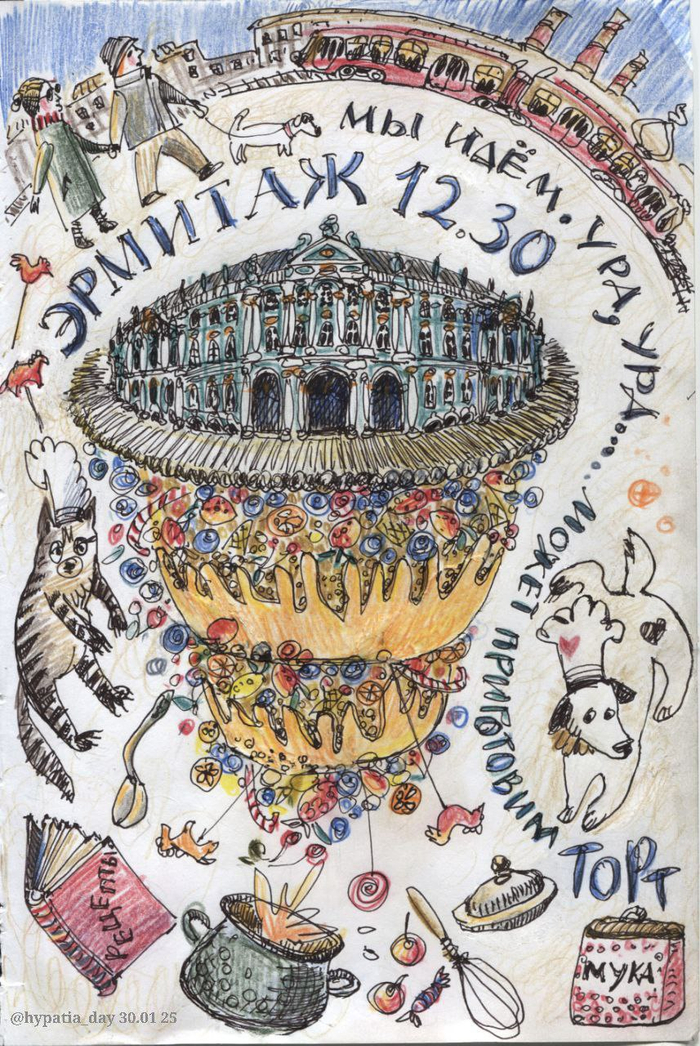 МЫ ИДЁМ. УРА, УРА...
ЭРМИТАЖ 12.30
МОЖЕТ ПРИГОТОВИМ
ТОРТ
РЕЦЕПТЫ
МУКА
@hypatia_day 30.01 25